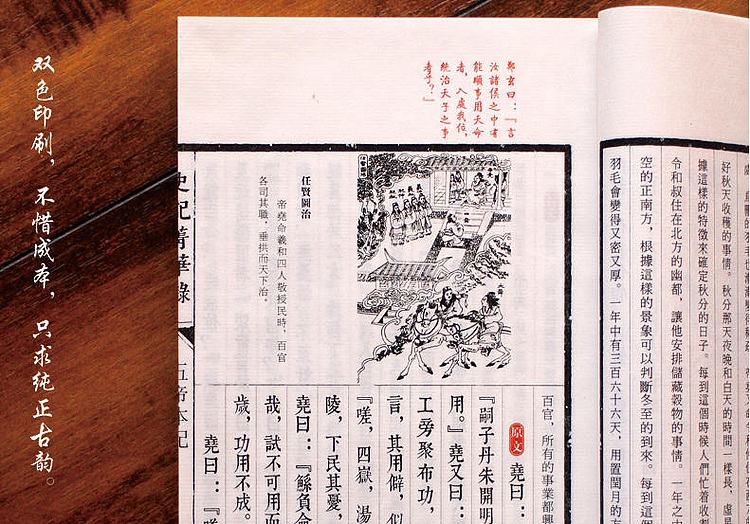 双色印刷，不惜成本，只求纯正古韵。
好秋天收穫的事情。秋分那天夜晚和白天的時間一樣長，虛星
據這樣的特徵來確定秋分的日子。每到這個時候人們忙着收
令和叔住在北方的幽都，讓他安排儲藏穀物的事情。一年之
空的正南方，根據這樣的景象可以判斷冬至的到來。每到這個
羽毛會變得又密又厚。一年中有三百六十六天，用置閏月的方
鄭玄曰：『言
汝諸侯之中有
能順事用天命
者，入處我位，
統治天子之事
者乎？』
任賢圖治
帝堯命羲和四人敬授民時，百官
各司其職，垂拱而天下治。
百官，所有的事業都興
原文 堯曰：
『嗣子丹朱開明
用。』堯又曰：
工旁聚布功，
言，其用僻，似
『嗟，四嶽，湯
陵，下民其憂，
堯曰：『鯀負命
哉，試不可用而
歲，功用不成。
堯曰：『嗟
史記菁華錄
五帝本紀